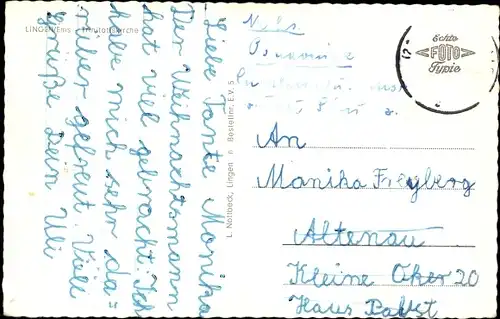 LINGEN/Ems
Liebe Tante Monika
Der Weihnachtsmann
hat viel gebracht. Ich
habe mich sehr da=
rüber gefreut. Viele
Grüße Dein Uli
L. Nottbeck, Lingen
Bestellnr. E.V. 5
Echte
FOTO
Typie
An
Monika Freyberg
Altenau
Kleine Oker 20
Haus Pabst